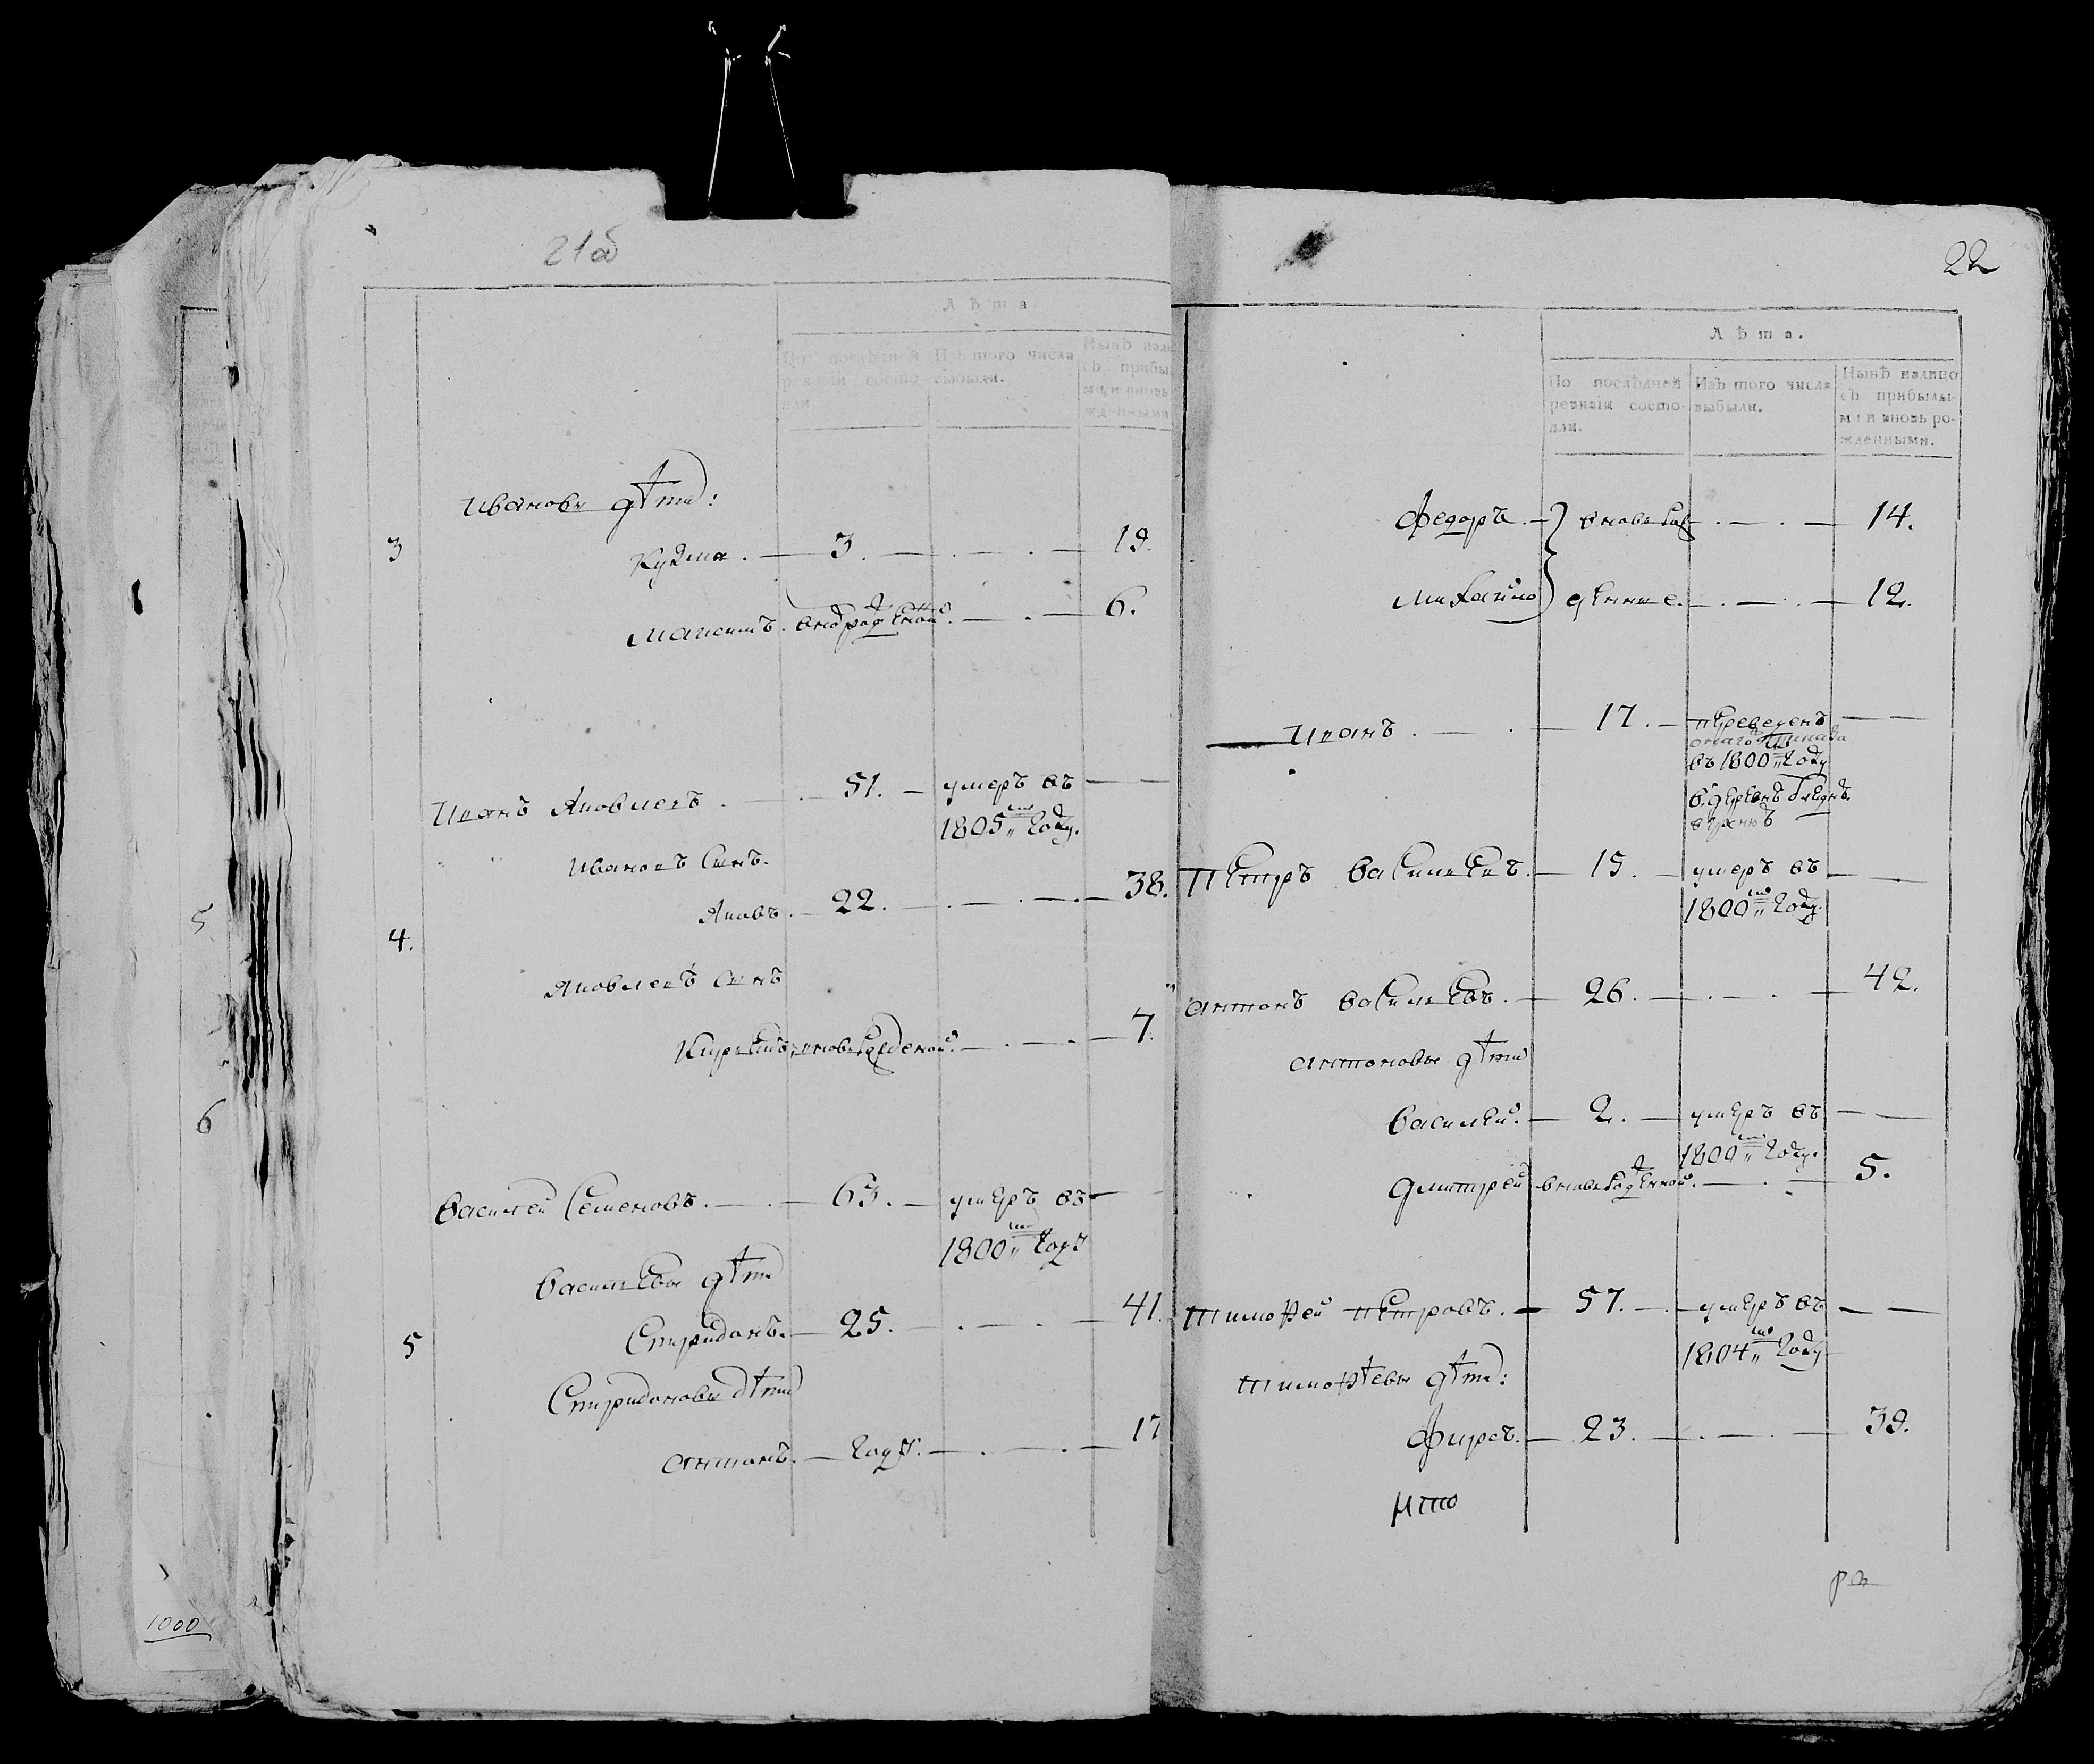 21об
Лѣта.
По послѣдней ревизіи состояли.
Изъ того числа выбыли.
Нынѣ нали
съ прибы
ми и вновь
жденными
Ивановы дѣти:
3 Кузма. — 3. — 19.
Максимъ. вновь рожденной. — 6.
Иванъ Яковлевъ. — 51. — умеръ въ
1805мъ году.
Ивановъ сынъ.
Яковъ. — 22. — 38.
4.
Яковлевъ сынъ
вновь рожденой. — 7.
Василей Семеновъ. — 63. — умеръ въ
1800мъ году
Васильевы дѣти
5 Спиридонъ. — 25. — 41.
Спиридоновы дѣти
Антонъ. — году. — 17
5
6
1000
22
Лѣта.
По послѣдней ревизіи состояли.
Изъ того числа выбыли.
Нынѣ налицо съ прибылыми и вновь рожденными.
Федоръ — } вновь рож — 14.
Михайло } денные. — 12.
Иванъ. — 17. — переведенъ
въ 1800мъ году
в деревнѣ
Петръ Васильевъ. — 15. — умеръ въ
1800мъ году.
Антонъ Васильевъ. — 26. — 42.
Антоновы дѣти
Василей. — 2. — умеръ въ
1800мъ году.
Дмитрей вновь рожденной. — 5.
Тимофей Петровъ. — 57. — умеръ въ
1804мъ году
Тимофѣевы дѣти:
Фирсъ. — 23. — 39.